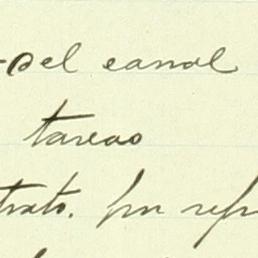 del canal
tareas
trato. por